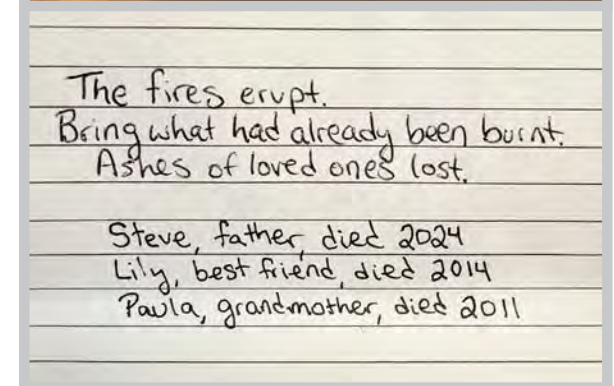 The fires erupt.
Bring what had already been burnt.
Ashes of loved ones lost.
Steve, father, died 2024
Lily, best friend, died 2014
Paula, grandmother, died 2011